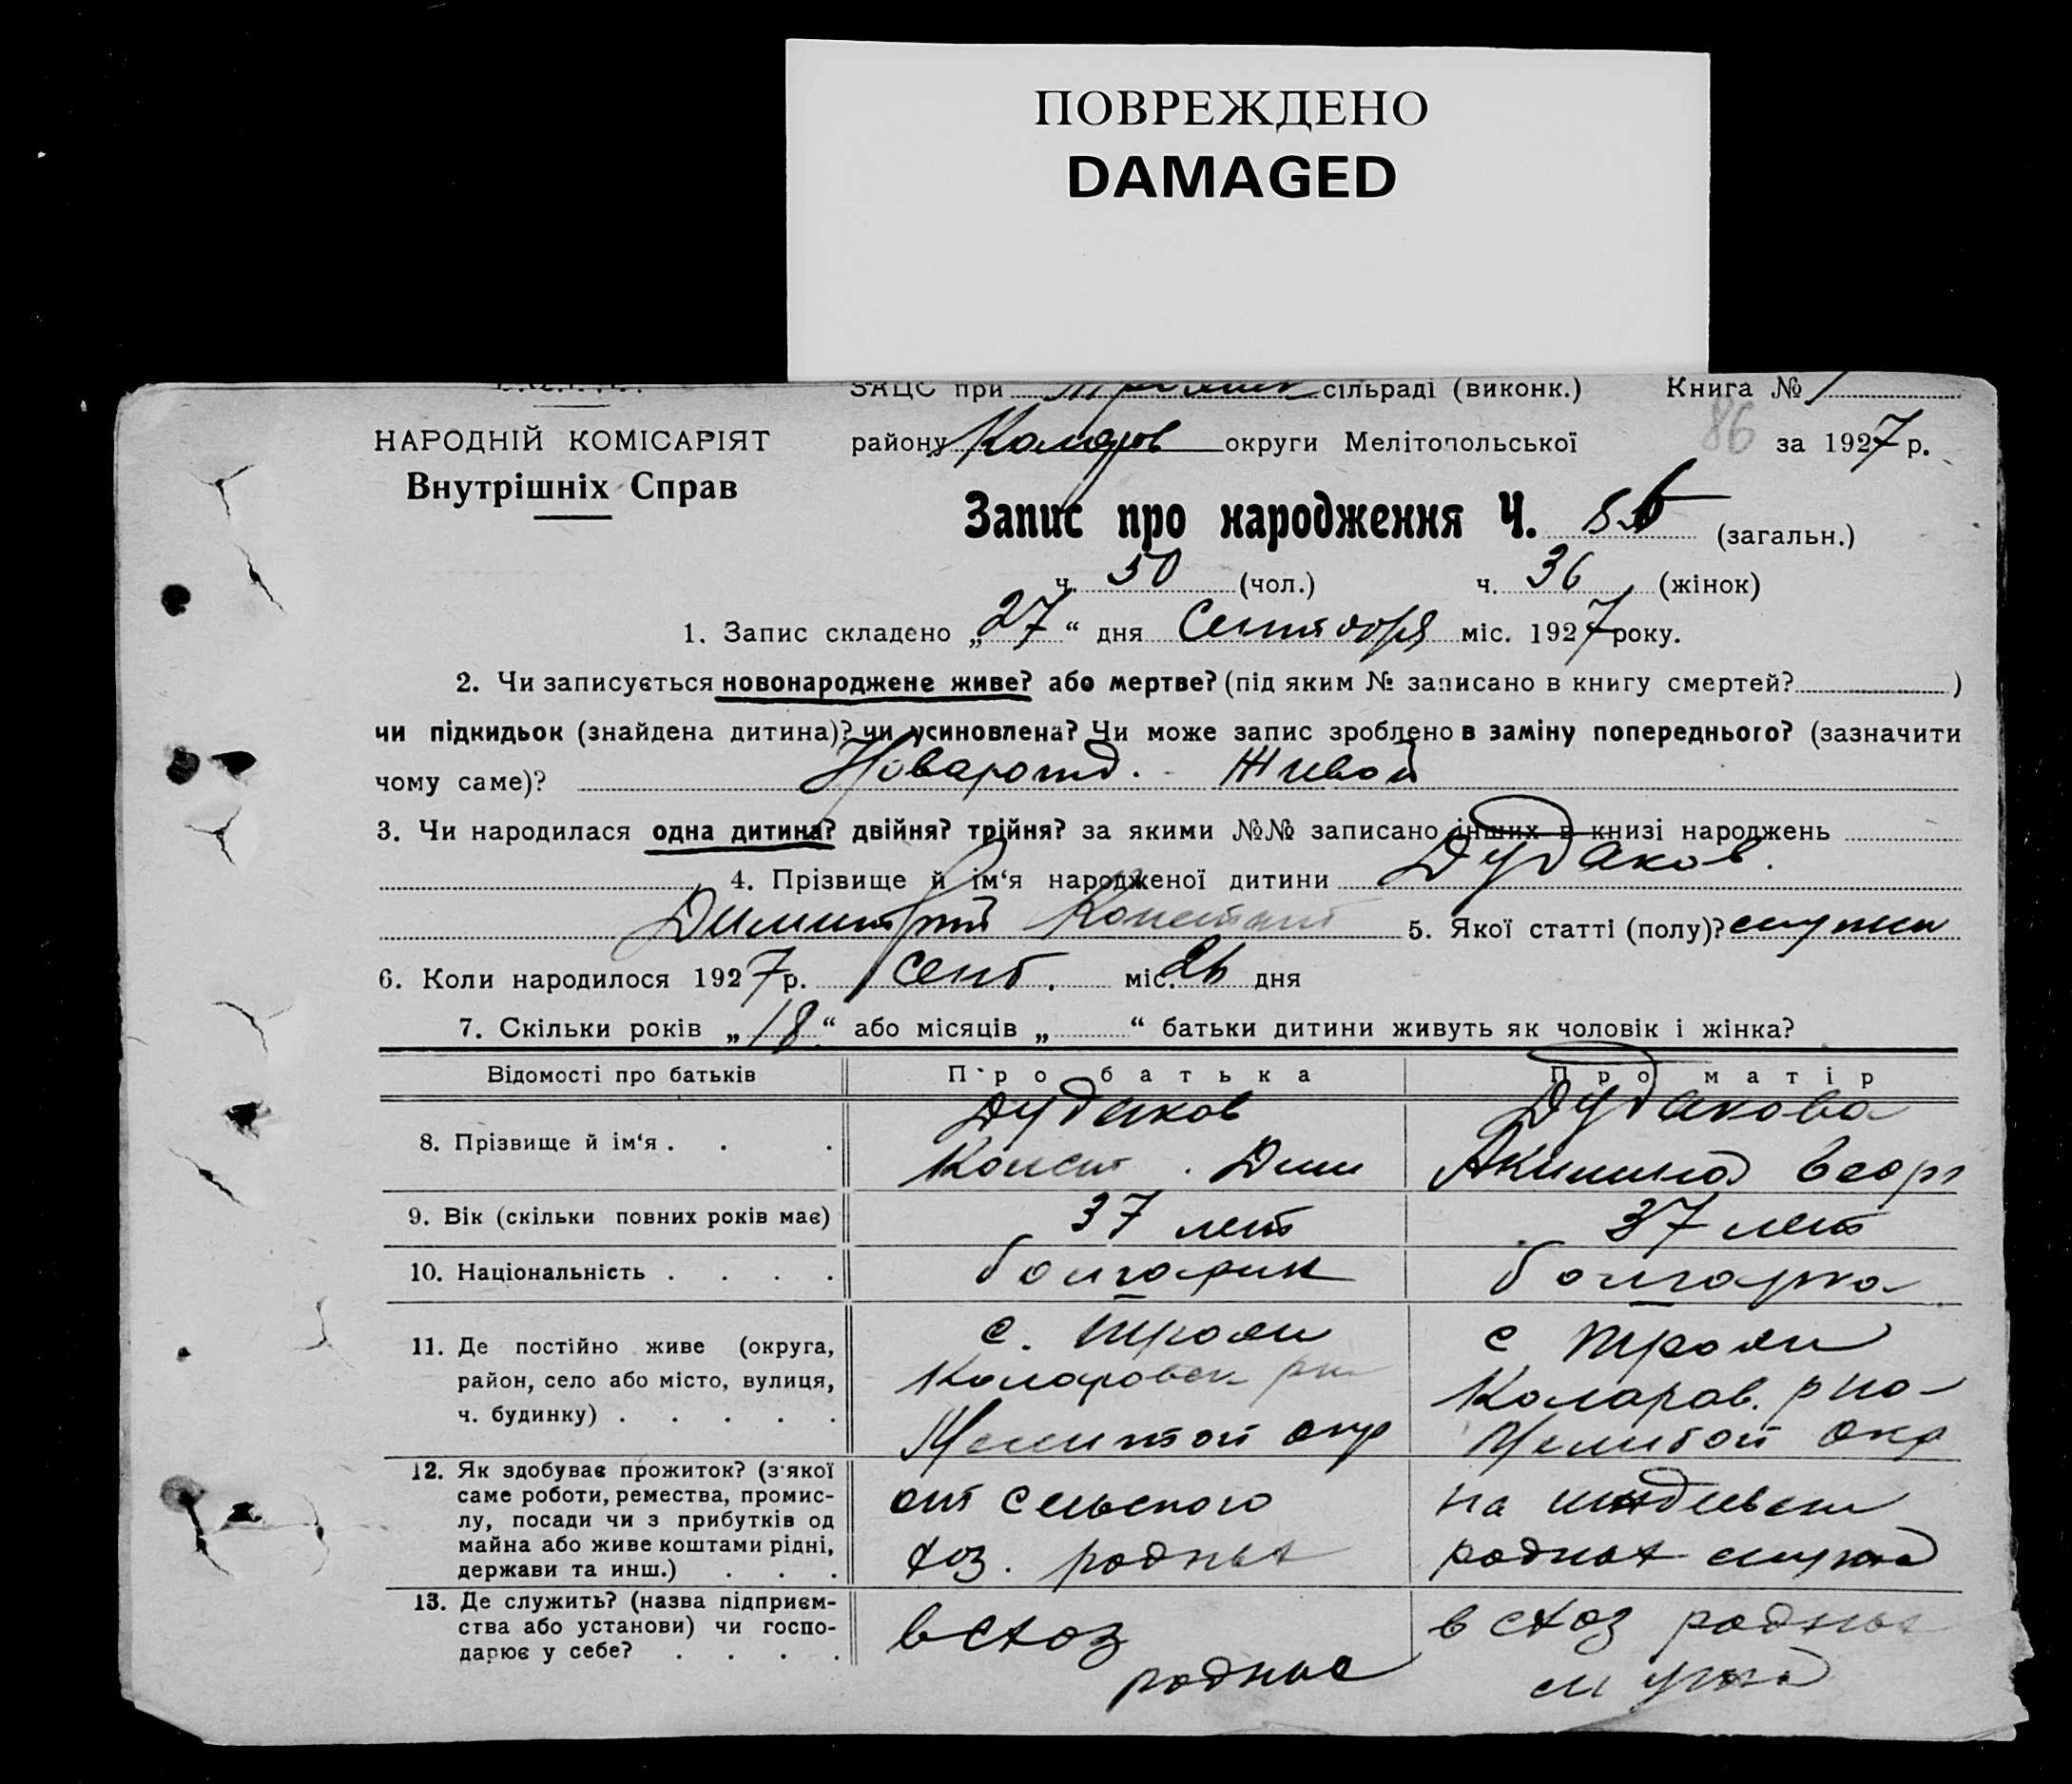 ПОВРЕЖДЕНО
DAMAGED
ЗАЦС при сільраді (виконк.) Книга № 1
НАРОДНІЙ КОМІСАРІЯТ району Коларов округи Мелітопольської 86 за 1927 р.
Внутрішніх Справ
Запис про народження Ч. 86 (загальн.)
ч. 50 (чол.) ч. 36 (жінок)
1. Запис складено „27“ дня Сентября міс. 1927 року.
2. Чи записується новонароджене живе? або мертве? (під яким № записано в книгу смертей? )
чи підкидьок (знайдена дитина)? чи усиновлена? Чи може запис зроблено в заміну попереднього? (зазначити
чому саме)? Новарожд. Живой
3. Чи народилася одна дитина? двійня? трійня? за якими №№ записано інших в книзі народжень
4. Прізвище й ім‘я народженої дитини Дудаков.
Димитрий Констант 5. Якої статті (полу)? мужи
6. Коли народилося 1927 р. сент. міс. 26 дня
7. Скільки років „18“ або місяців „ “ батьки дитини живуть як чоловік і жінка?
Відомості про батьків Про батька Про матір
8. Прізвище й ім‘я . . . Дудаков Дудакова
Конст. Дим Акилина Геор
9. Вік (скільки повних років має) 37 лет 37 лет
10. Національність . . . . болгарин болгарка
11. Де постійно живе (округа, с. Трояни с Трояни
район, село або місто, вулиця, Коларовск рн Коларов. рна
ч. будинку) . . . . . Мелитой окр Мелитой окр
12. Як здобуває прожиток? (з'якої
саме роботи, ремества, промис- от сельского на иждивени
лу, посади чи з прибутків од
майна або живе коштами рідні, хоз. родных родных мужа
держави та инш.) . . .
13. Де служить? (назва підприєм-
ства або установи) чи госпо- в схоз в схоз родных
дарює у себе? . . . . родные мужа